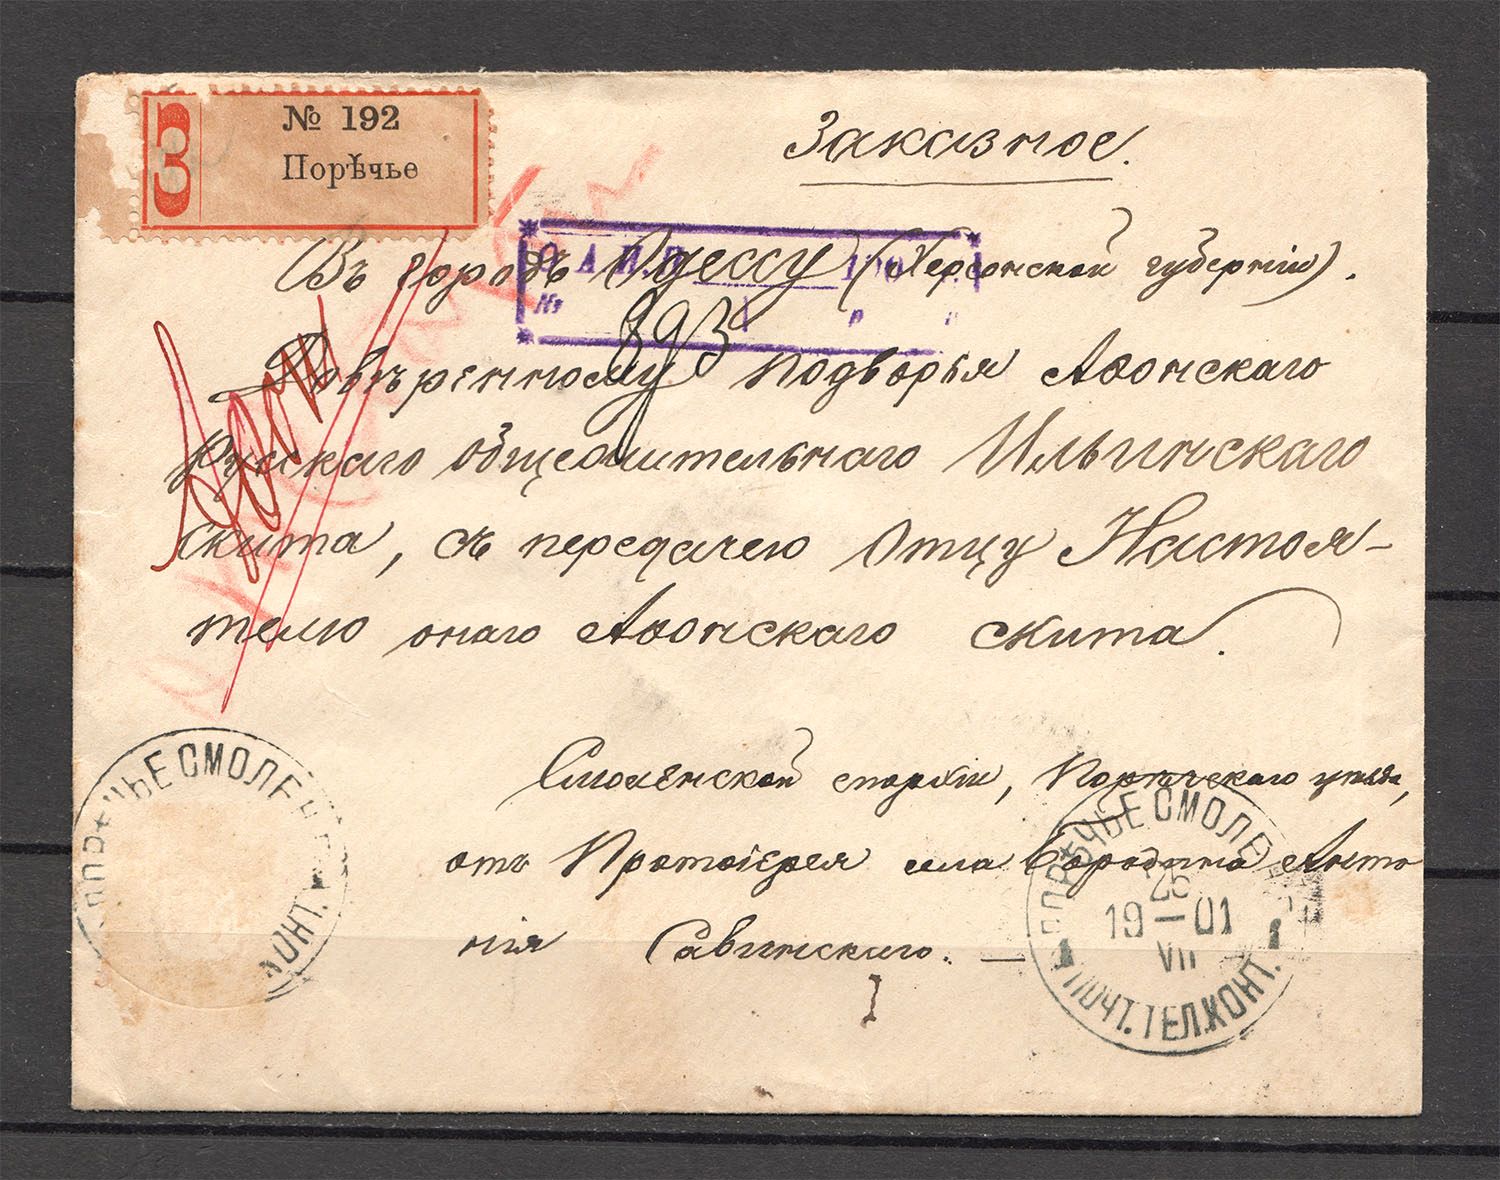 З
№ 192
Порѣчье
Заказное.
Въ городъ Одессу (Херсонской губерніи).
893
Довѣренному Подворья Аѳонскаго
Русскаго общежительнаго Ильинскаго
скита, съ передачею Отцу Настоя-
телю онаго Аѳонскаго скита.
Смоленской епархіи, Порѣчскаго уѣзда,
отъ Протоіерея села Бородина Анто
нія Савинскаго. —
ПОРѢЧЬЕ СМОЛЕН
КОНТ.
ПОРѢЧЬЕ СМОЛЕН
25
19 — 01
VII
1 1
ПОЧТ. ТЕЛ. КОНТ.